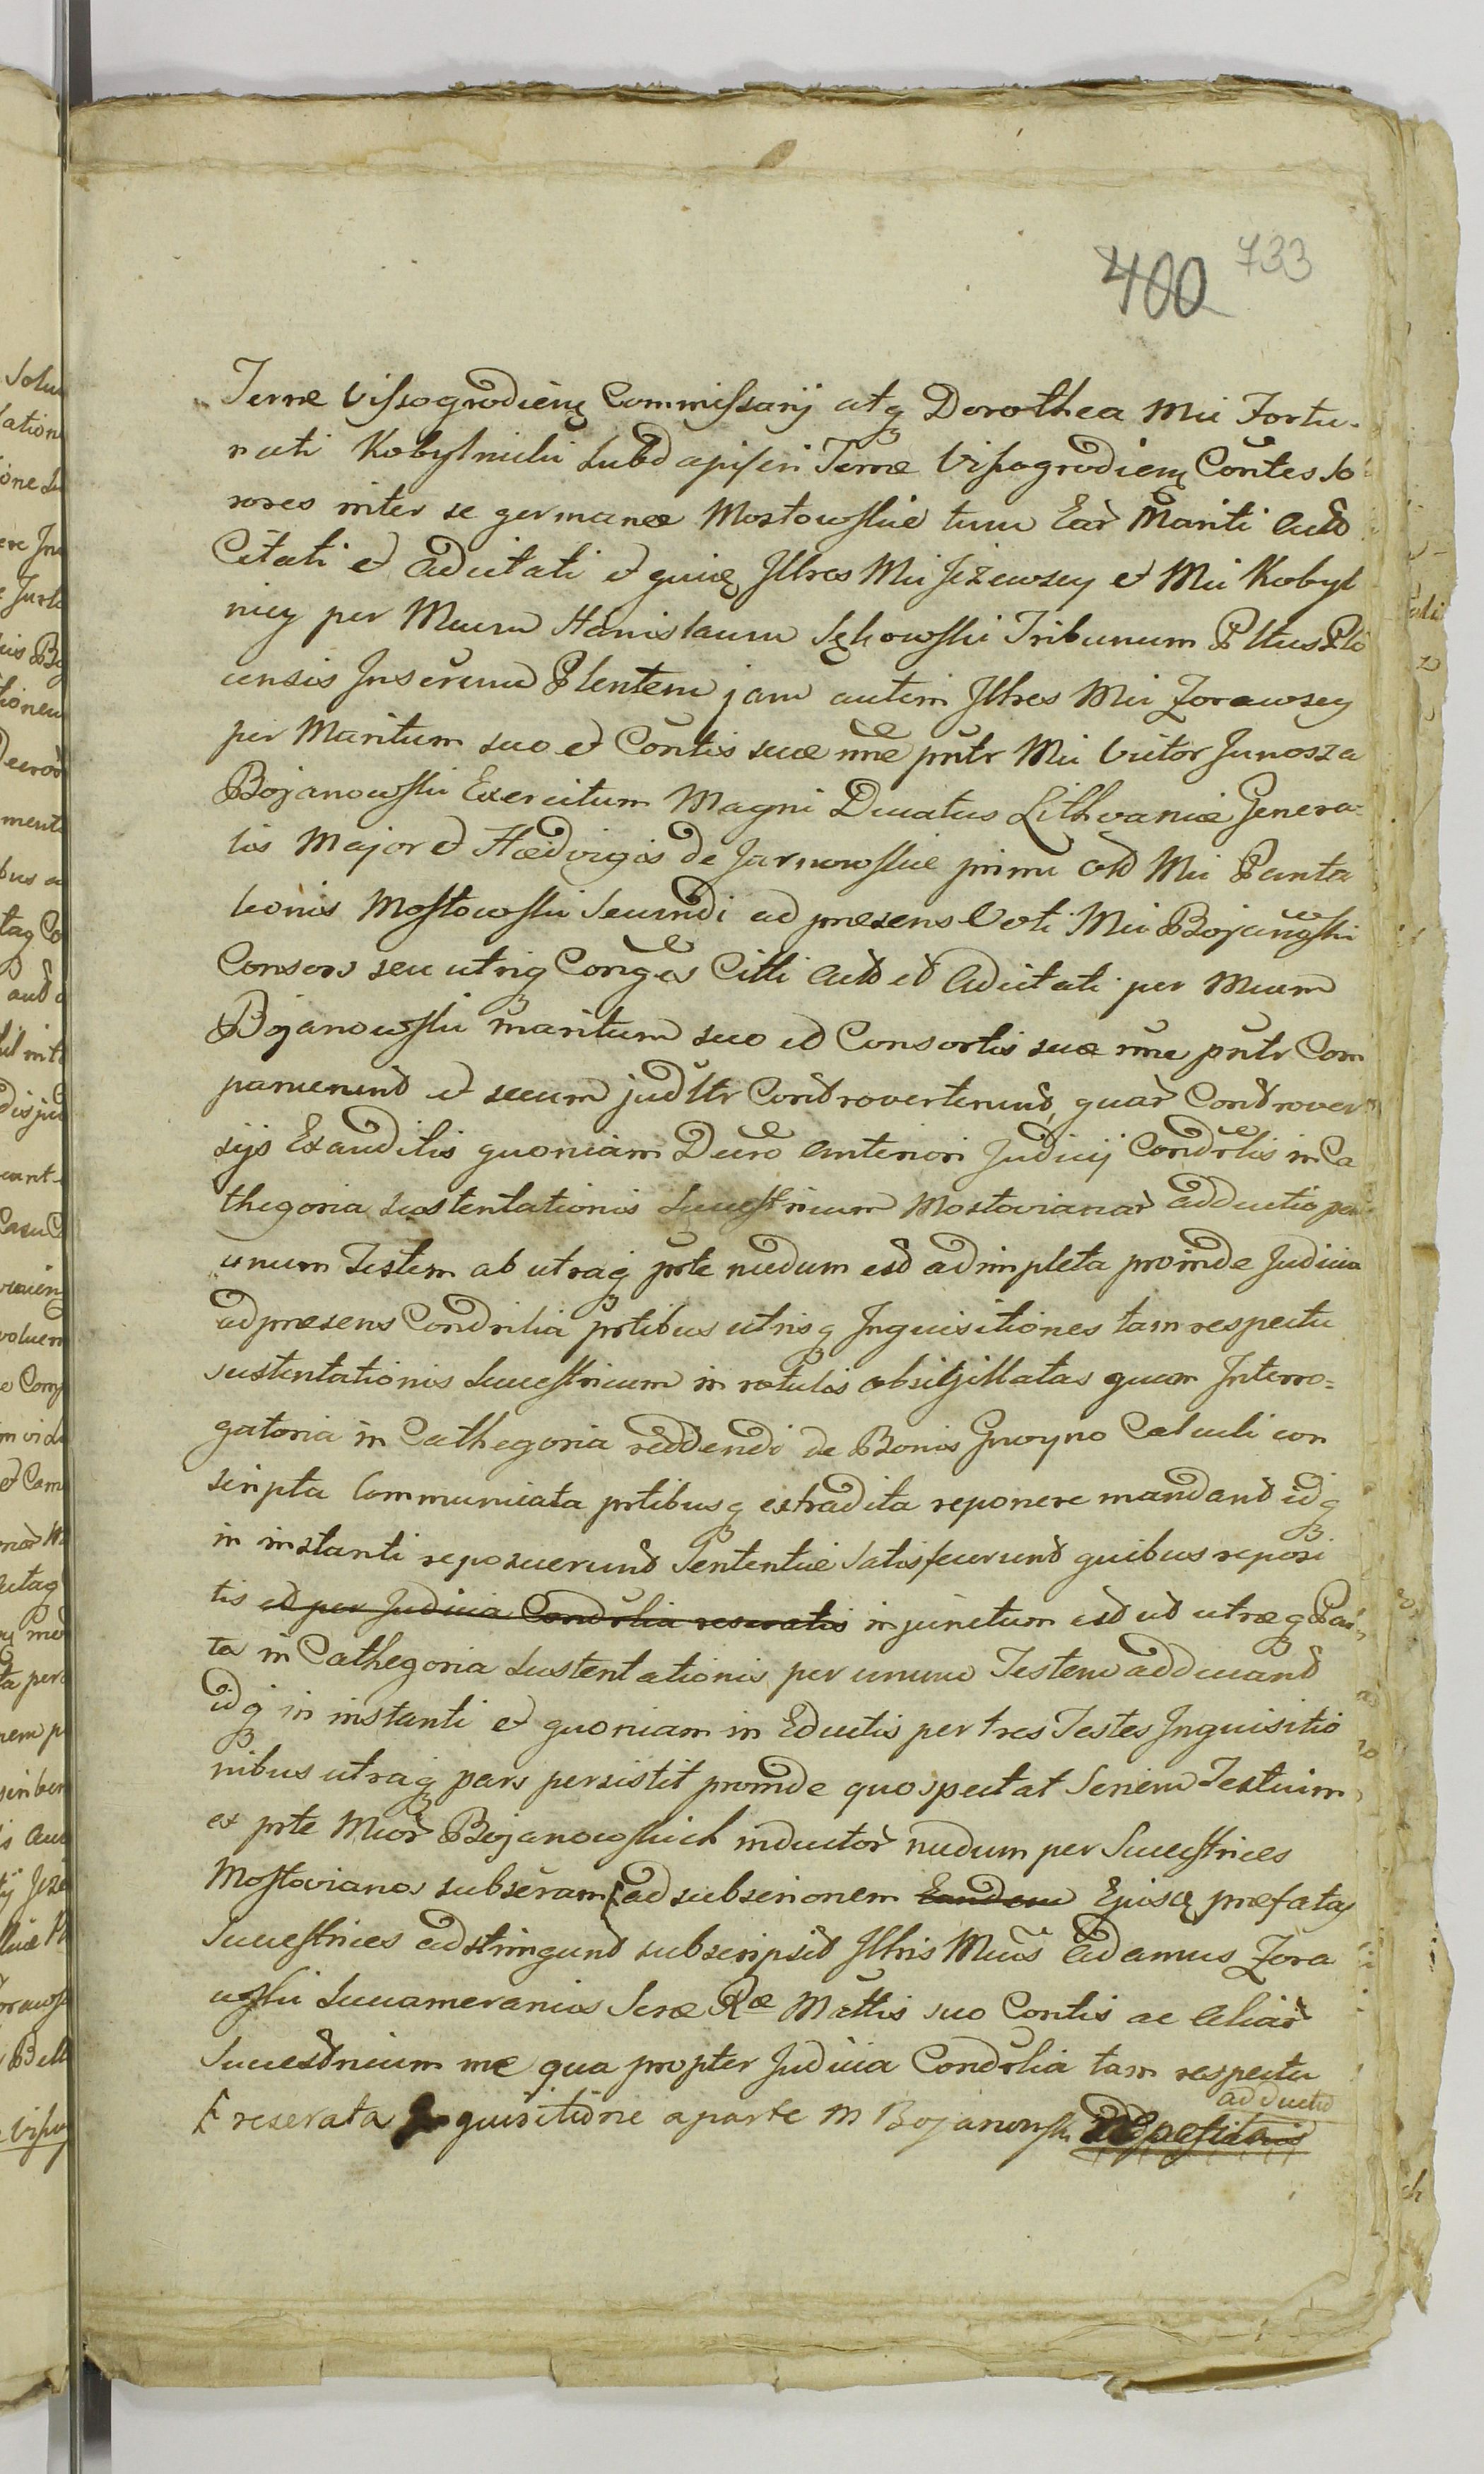 733
400
Terræ Vissogrodiens Commissarij atq Dorothea Mii Fortu-
nati Kobylnicki Subdapiferi Terræ Vissogrodiens Contes So
rores inter se germanæ Mostowskie tum Ear Mariti Act
Citati et Adcitati et quid Illres Mii Jeżewscy et Mii Kobyl
niccy per Mcum Stanislaum Sękowski Tribunum Pltus Plo
censis Inserend Plentem jam autem Illres Mii Zorawscy
per Maritum suo et Contis suæ nne pntr Mii Victor Junosza
Bojanowski Exercituum Magni Ducatus Lithvaniæ Genera-
lis Major et Hedvigis de Jarnowskie primi olt Mii Panta
leonis Mostowski Secundi ad præsens Voti Mii Bojanowski
Consors seu utriq Conges Citti Act et Adcitati per Mcum
Bojanowski maritum suo et Consortis suæ nne pntr Com
paruerunt et secum judltr Controverterunt, quar Controver
sijs Exauditis quoniam Decro anteriori Judicij Condrlis in Ca
thegoria sustentationis Sucestricum Mostovianar adductio per
unum Testem ab utraq prte nedum est adimpleta proinde Judicia
ad præsens Condrilia prtibus utrisq Inquisitiones tam respectu
sustentationis Sucestricum in rotulis obsigillatas quam Interro-
gatoria in Cathegoria reddendi de Bonis Gwoyno Calculi con
scripta Communicata prtibusq extradita reponere mandant idq
in instanti reposuerunt Sententiæ Satisfecerunt quibus reposi
tis et per Judicia Condrlia reseratis injunctum est ut utræq Par
tes in Cathegoria Sustentationis per unum Testem adducant
idq in instanti et quoniam in Eductis per tres Testes Inquisitio
nibus utraq pars persistit proinde quo spectat Seriem Testium
ex prte Mcor Bojanowskich inductor nedum per Sucestrices
Mostovianas subseram ad subserionem Eandem Ejusd præfatas
Sucestrices adstringunt subscripsit Illris Mcus Adamus Zora
wski Succamerarius Scræ Ræ Mattis suo Contis ac Aliar
Sucestricum nne qua propter Judicia Condrlia tam respectu
reserata Inquisitione a parte M Bojanowski adducta